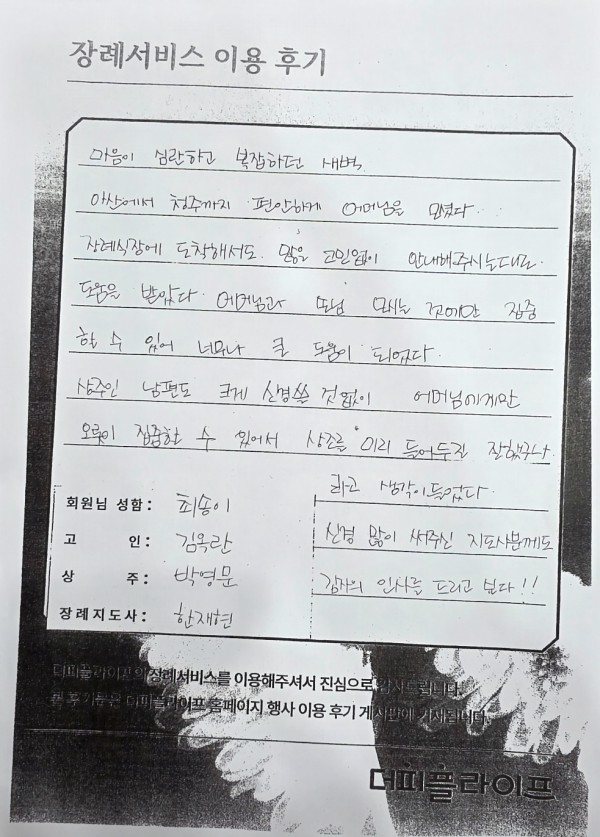 장례서비스 이용 후기
마음이 심란하고 복잡하던 새벽
아산에서 청주까지 편안하게 어머님을 모셨다.
장례식장에 도착해서도 많은 고민없이 안내해주시는대로
도움을 받았다. 어머님과 모시는 것에만 집중
할 수 있어 너무나 큰 도움이 되었다.
상주인 남편도 크게 신경쓸 것없이 어머님에게만
오롯이 집중할 수 있어서 상조를 미리 들어두길 잘했구나
라고 생각이들었다.
신경 많이 써주신 지도사분께도
감사의 인사를 드리고 싶다!!
회원님 성함: 최송이
고 인: 김옥란
상 주: 박영문
장례지도사: 한재현
더피플라이프의 장례서비스를 이용해주셔서 진심으로 감사드립니다.
본 후기문은 더피플라이프 홈페이지 행사 이용 후기 게시판에 기재됩니다.
더피플라이프